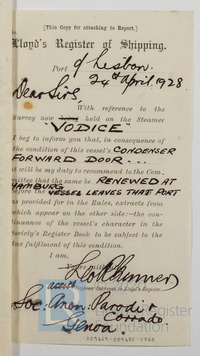 [This Copy for attaching to Report.]
Lloyd's Register of Shipping.
Port of Lisbon
24th April 1928.
Dear Sirs,
With reference to the
Survey now being held on the Steamer
"VODICE"
I beg to inform you that, in consequence of
the condition of this vessel's CONDENSER
FORWARD DOOR...
it will be my duty to recommend to the Com-
mittee that the same be RENEWED AT
HAMBURG before the VESSEL LEAVES THAT PORT
as provided for in the Rules, extracts from
which appear on the other side:—the con-
tinuance of the vessel's character in the
Society's Register Book to be subject to the
due fulfilment of this condition.
I am,
Surveyor to Lloyd's Register
Soc. Anon. Parodi &
Corrado
Genoa